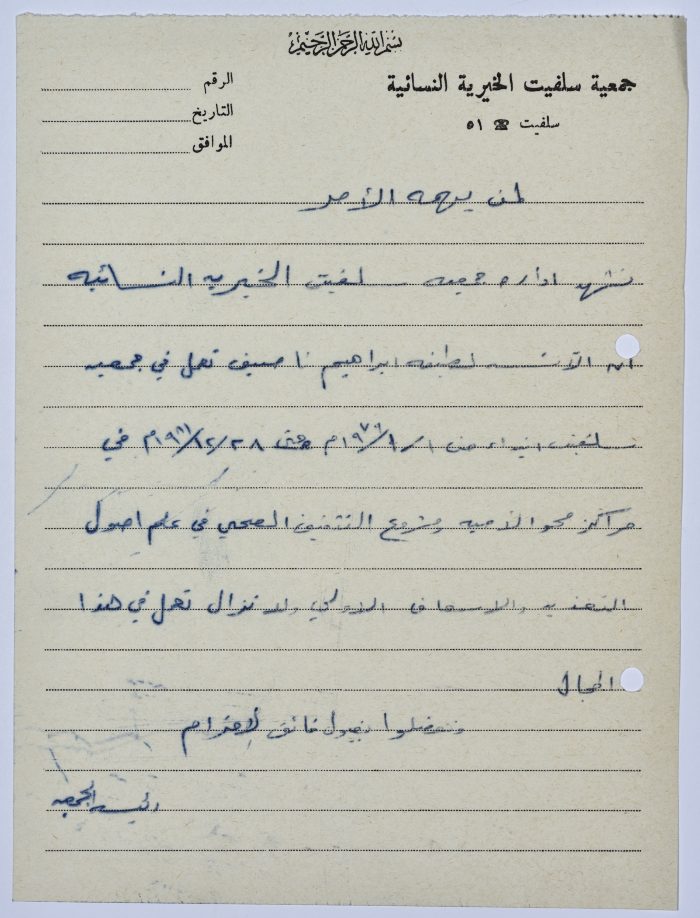 بسم الله الرحمن الرحيم
جمعية سلفيت الخيرية النسائية
سلفيت ☎ ٥١
الرقم
التاريخ
الموافق
لمن يهمه الأمر
تشهد اداره جمعيه سلفيت الخيريه النسائيه
ان الآنسه لطيفه ابراهيم ناصيف تعمل في جمعيه
سلفيت ابتداء من ١/١/ م وحتى ٢٨/١٢/ م في
مراكز محو الاميه ومشروع التثقيف الصحي في علم اصول
التغذيه والاسعاف الاولي ولا تزال تعمل في هذا
المجال
وتفضلوا بقبول فائق الاحترام
رئيسه الجمعيه